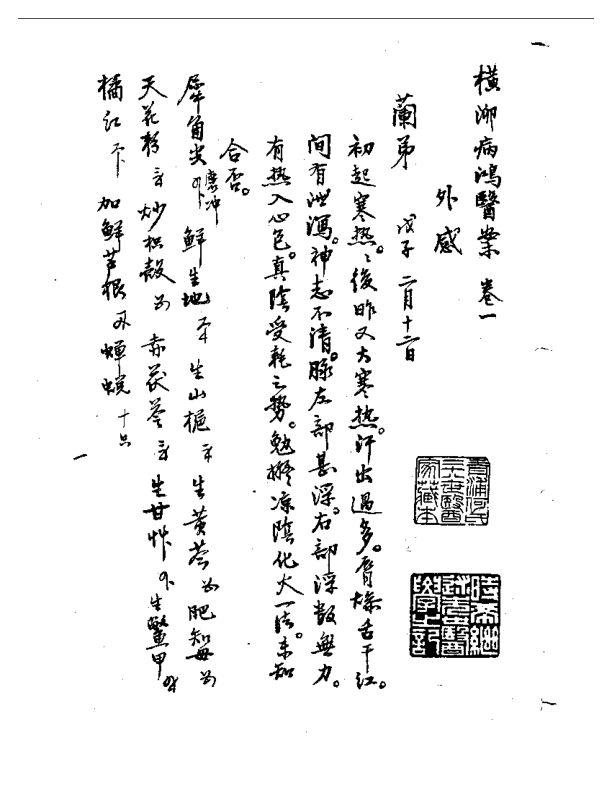 橫泖病鴻醫案 卷一
外感
蘭弟 戊子 二月十二日
初起寒热。〻後昨又大寒热。汗出過多。唇燥舌干红。
间有泄瀉。神志不清。脉左部甚浮。右部浮散無力。
有热入心包。真陰受耗之势。勉擬凉陰化火一法。未知
合否。
犀角尖 磨冲 鲜生地 生山栀 生黄芩 肥知母
天花粉 炒枳殼 赤茯苓 生甘艸 生鱉甲
橘红 加鲜芦根 蟬蜕 十只
青浦何氏
二十世醫
家藏本